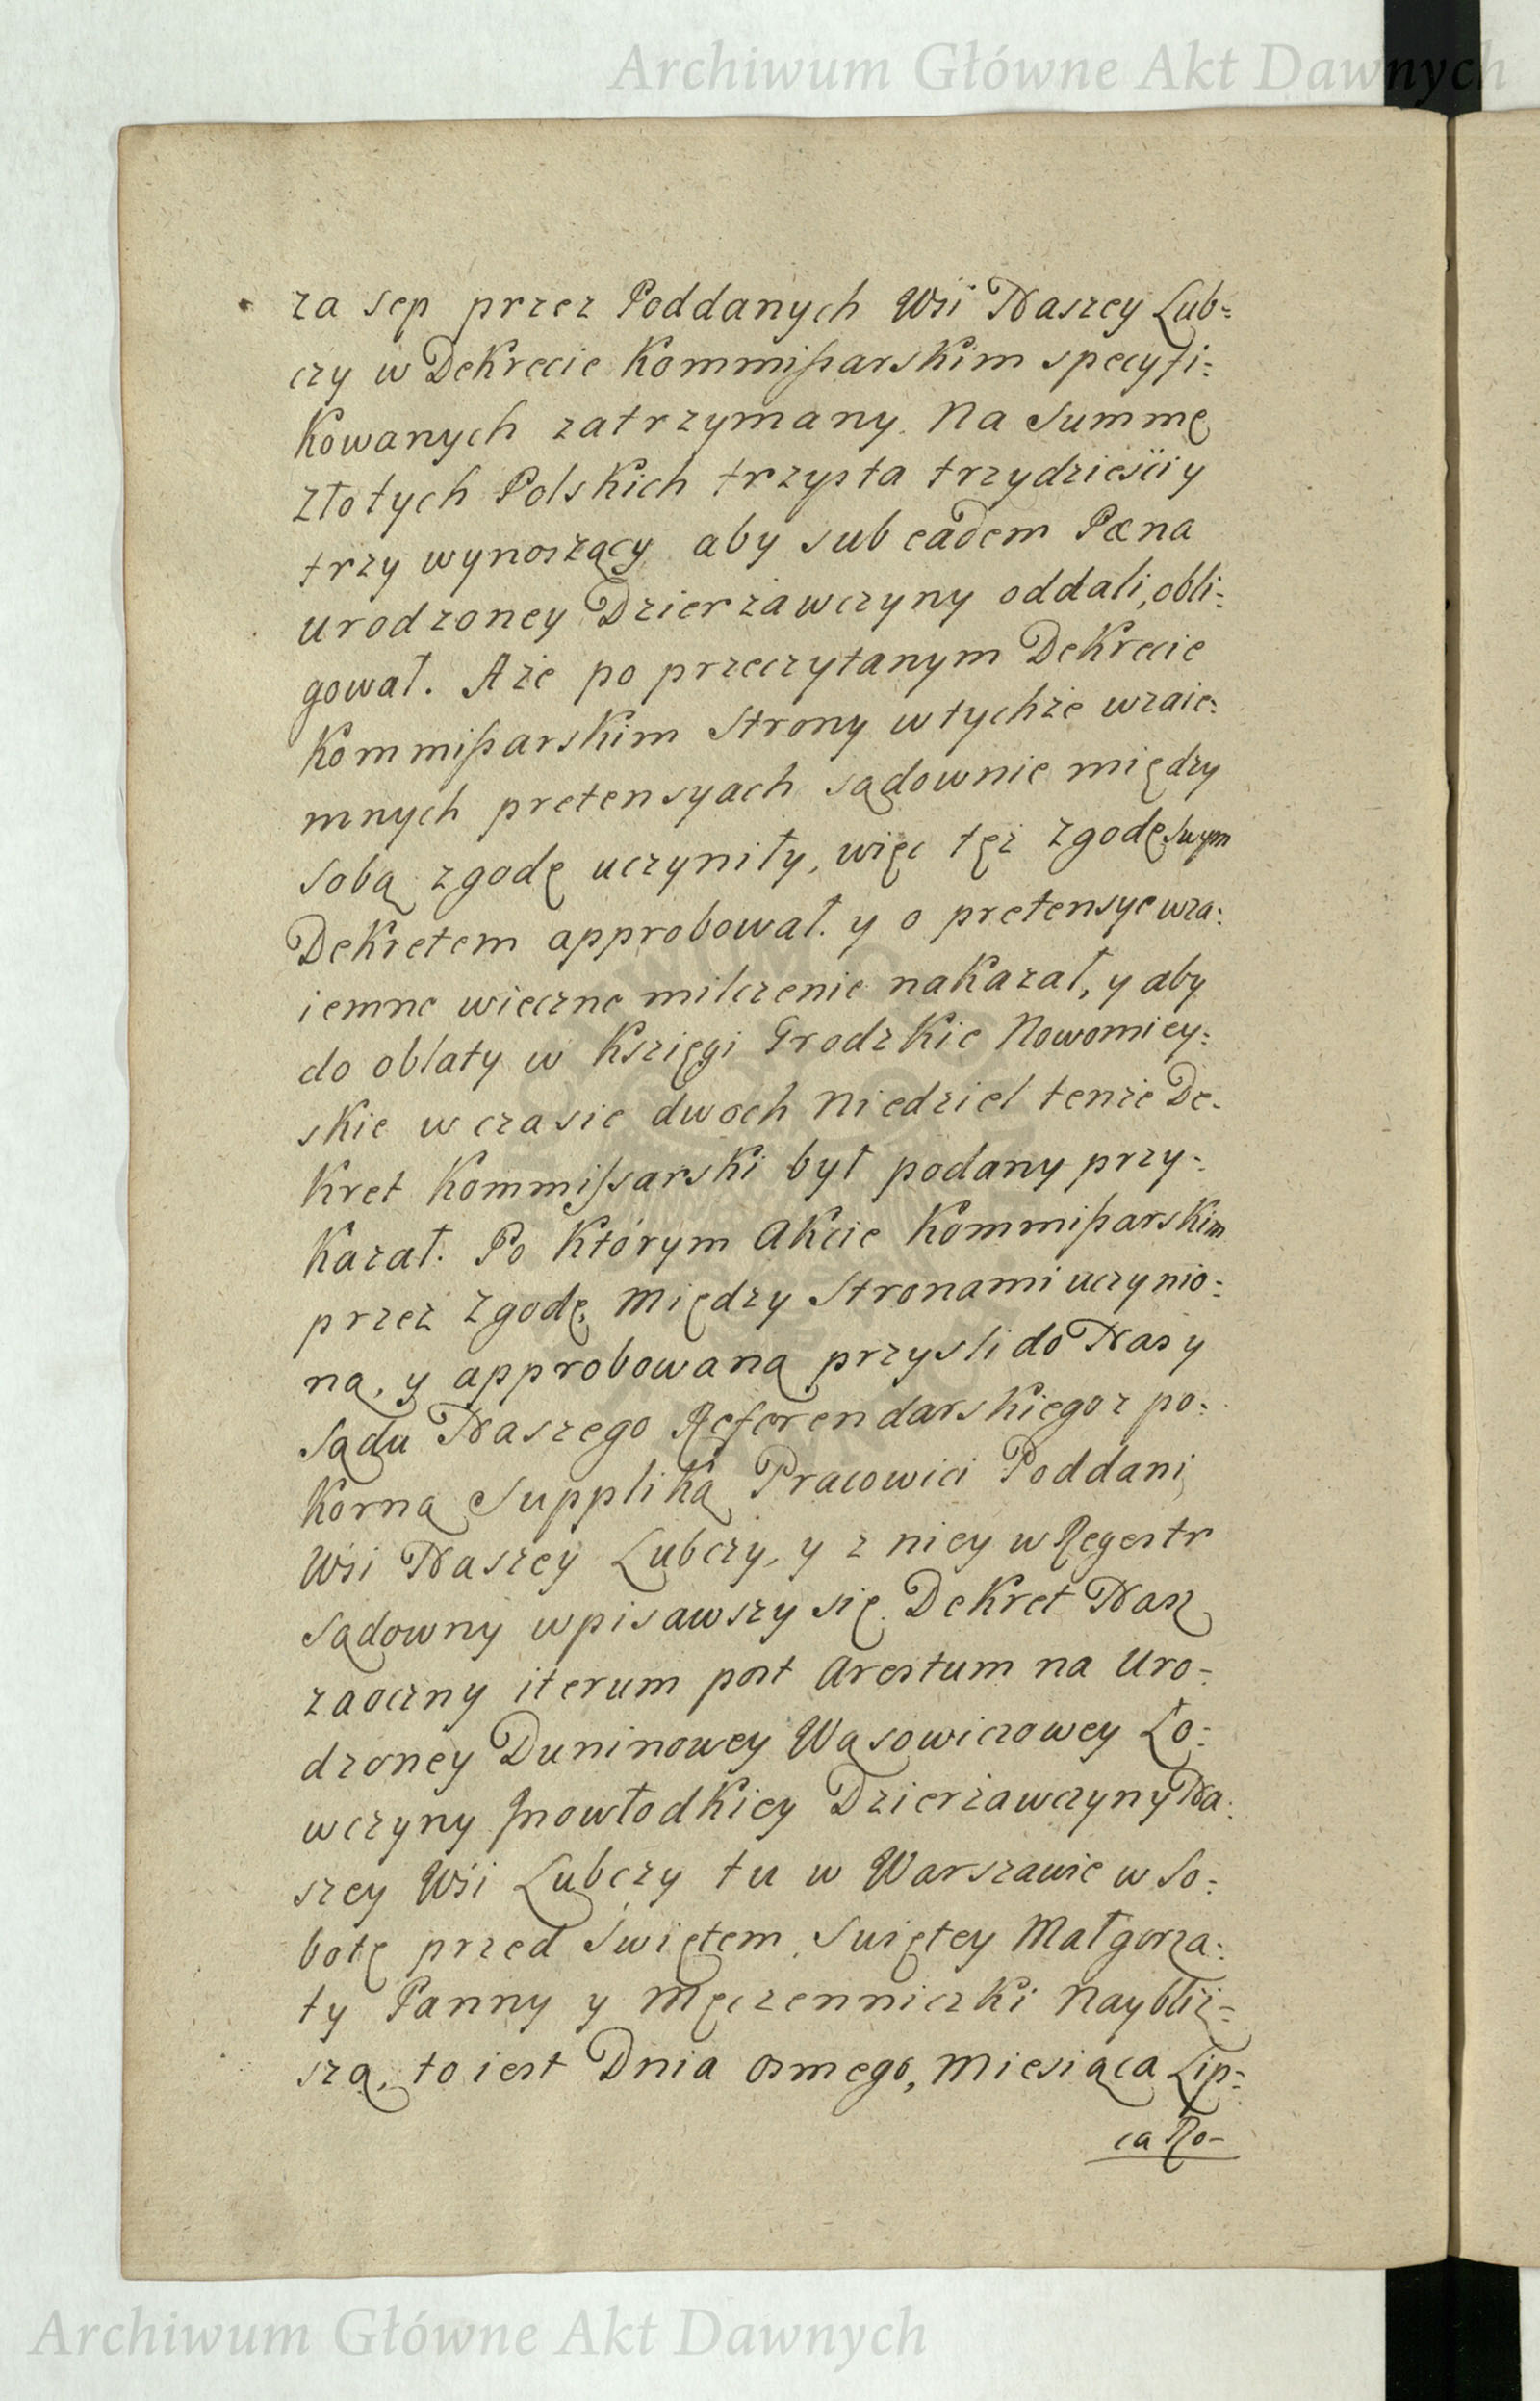 Archiwum Główne Akt Dawnych
za sep przez Poddanych Wsi Naszey Lub=
czy w Dekrecie Kommißarskim specyfi=
kowanych zatrzymany. Na Summę
złotych Polskich trzysta trzydzieści y
trzy wynoszący, aby sub eadem Pæna
urodzoney Dzierżawczyny oddali, obli=
gował. A że po przeczytanym Dekrecie
Kommißarskim Strony w tychże wzaie=
mnych pretensyach sądownie między
sobą zgodę uczyniły, więc tęż zgodę swym
Dekretem approbował. y o pretensye wza=
iemne wieczne milczenie nakazał, y aby
do oblaty w Księgi Grodzkie Nowomiey=
skie w czasie dwoch Niedziel tenże De-
kret Kommissarski był podany przy-
kazał. Po którym Akcie Kommißarskim
przez zgodę Między Stronami uczynio=
ną, y approbowaną przyszli do Nas y
Sądu Naszego Referendarskiego z po=
korną Suppliką Pracowici Poddani
Wsi Naszey Lubczy, y z niey w Regestr
Sądowny wpisawszy się Dekret Nasz
zaoczny iterum post Arestum na Uro-
dzoney Duninowey Wąsowiczowey Ło=
wczyny Inowłodkiey Dzierżawczyny Na=
szey Wsi Lubczy tu w Warszawie w So=
botę przed Świętem Swiętey Małgorza=
ty Panny y Męczenniczki Naybliż=
szą, to iest Dnia osmego, Miesiąca Lip=
ca Ro-
Archiwum Główne Akt Dawnych